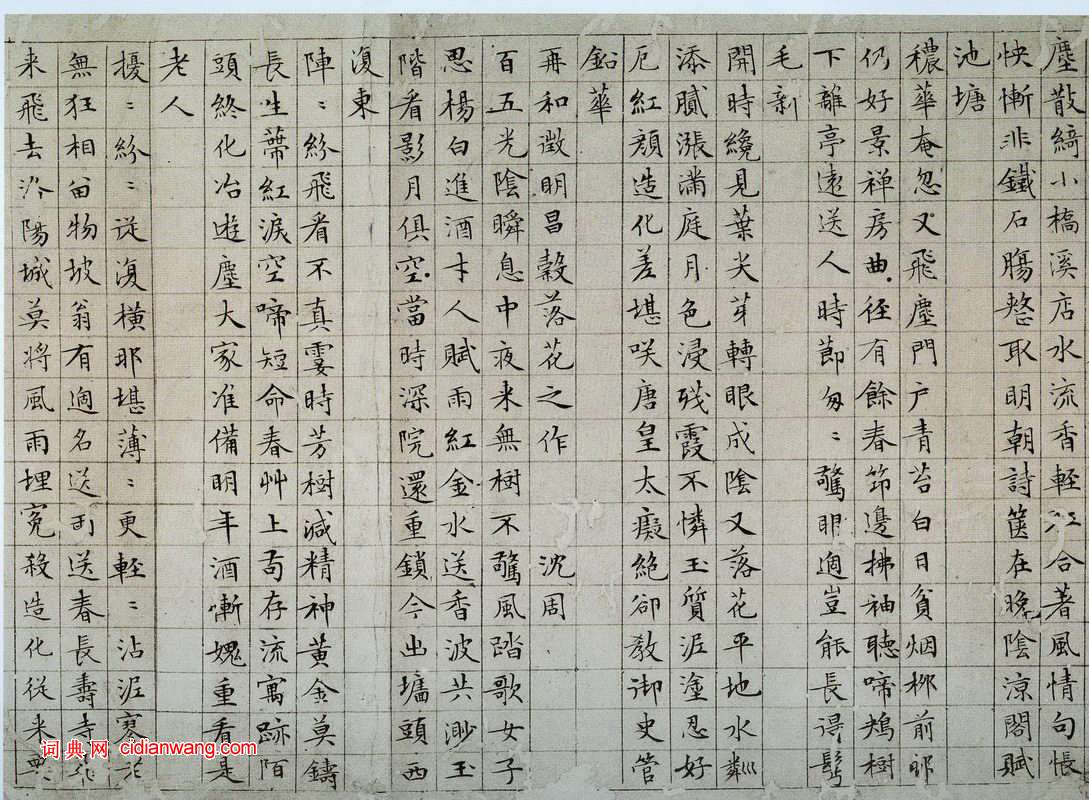 塵散綺小橋溪店水流香輕紅合著風情句悵
怏慚非鐵石腸整取明朝詩篋在晚陰涼閣賦
池塘
穠華奄忽又飛塵門户青苔白日貧烟柳前耶
仍好景禅房曲徑有餘春笻邊拂袖聽啼鴂樹
下離亭遠送人時節匆〻驚眼過豈能長得髩
毛新
開時纔見葉尖芽轉眼成陰又落花平地水粼
添膩漲滿庭月色浸残霞不憐玉質泥塗忍好
厄紅顏造化差堪咲唐皇太癡絕卻教御史管
鉛華
再和徵明昌穀落花之作 沈周
百五光陰瞬息中夜来無樹不驚風踏歌女子
思楊白進酒才人賦雨紅金水送香波共渺玉
階看影月俱空當時深院還重鎖今出墻頭西
復東
陣〻紛飛看不真霎時芳樹減精神黄金莫鑄
長生蒂紅淚空啼短命春艸上苟存流寓跡陌
頭終化冶遊塵大家准備明年酒慚媿重看是
老人
擾〻紛〻從復橫那堪薄〻更輕〻沾泥寥於
無狂相留物坡翁有過名送雨送春長壽寺飛
来飛去洛陽城莫将風雨埋冤殺造化從来無
词典网 cidianwang.com